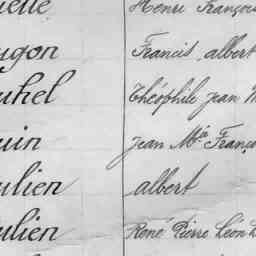 Henri François
ugon Francis albert
uhel Théophile jean M
uin jean M^ie Franço
ulien albert
ulien René Pierre Léon L